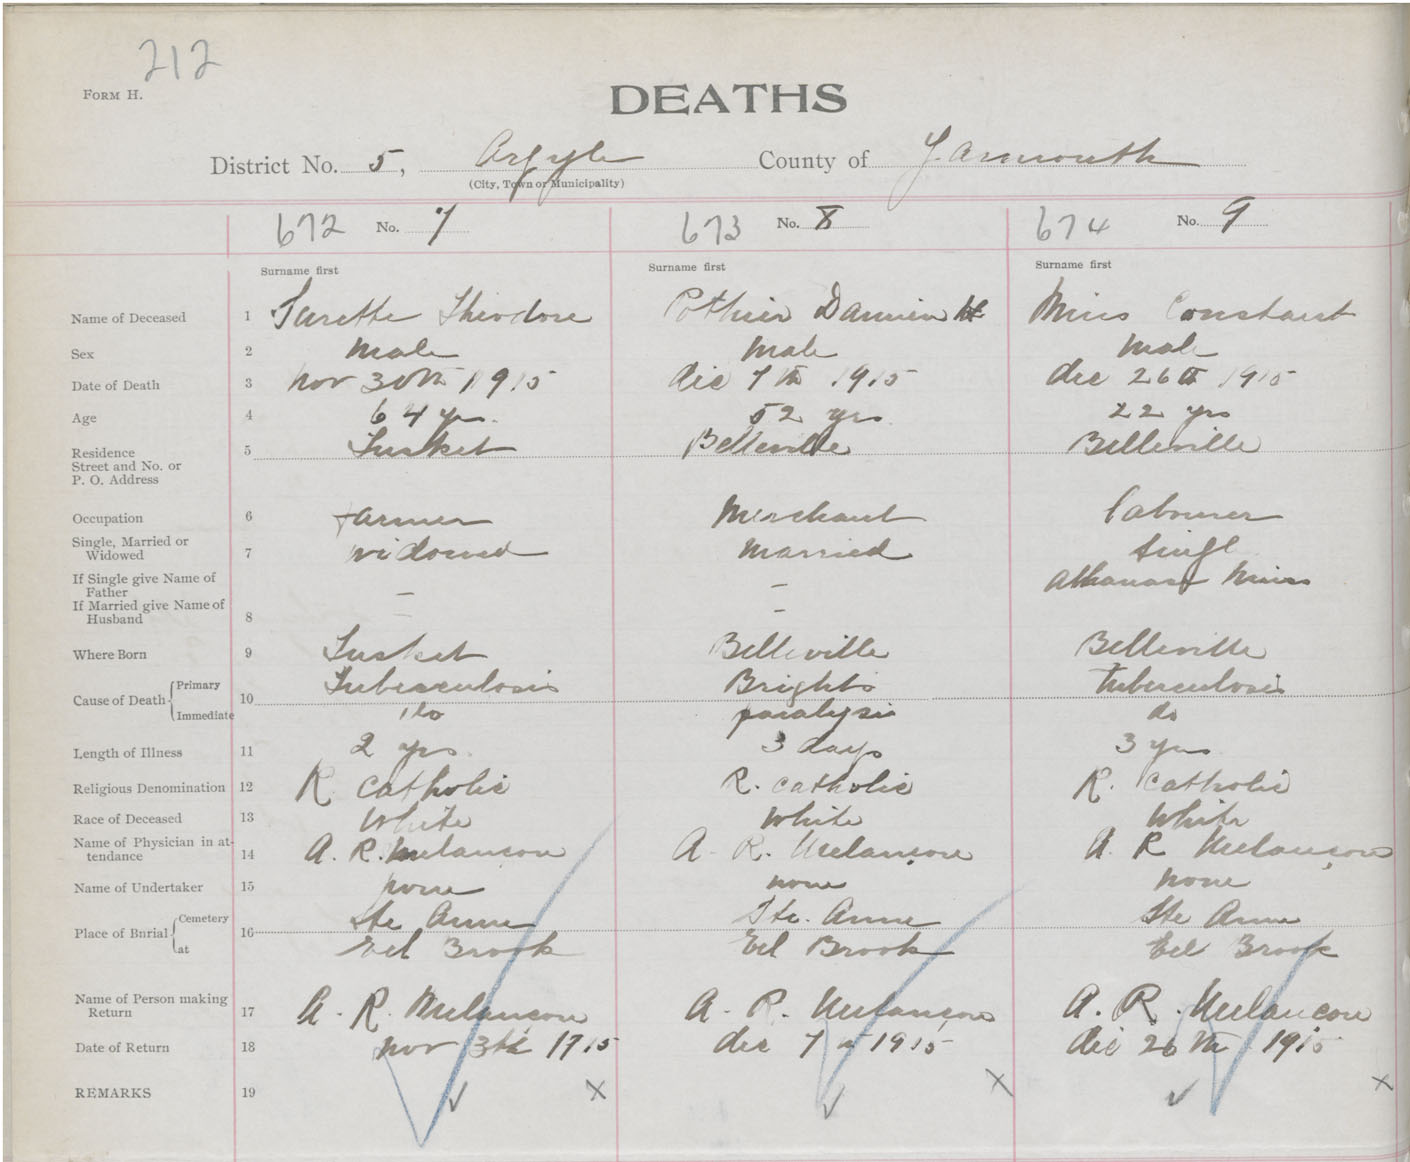 212
FORM H.
DEATHS
District No. 5, Argyle County of Yarmouth
(City, Town or Municipality)
672 No. 7 673 No. 8 674 No. 9
Surname first Surname first Surname first
Name of Deceased 1 Surette Theodore Pothier Damien Mius Constant
Sex 2 male male male
Date of Death 3 nov 30th 1915 dec 7th 1915 dec 26th 1915
Age 4 64 yrs. 52 yrs 22 yrs
Residence 5 Tusket Belleville Belleville
Street and No. or
P. O. Address
Occupation 6 farmer Merchant labourer
Single, Married or
Widowed 7 widowed married singl
If Single give Name of
Father - - Athanase Mius
If Married give Name of
Husband 8 - -
Where Born 9 Tusket Belleville Belleville
Cause of Death Primary 10 Tuberculosis Brights tuberculosis
Immediate do paralysis do
Length of Illness 11 2 yrs. 3 days 3 yrs
Religious Denomination 12 R. Catholic R. catholic R. Catholic
Race of Deceased 13 White White White
Name of Physician in at-
tendance 14 A. R. Melancon A. R. Melancon A. R. Melancon
Name of Undertaker 15 none none none
Place of Burial Cemetery 16 Ste Anne Ste. Anne Ste Anne
at Eel Brook Eel Brook Eel Brook
Name of Person making
Return 17 A. R. Melancon A. R. Melancon A. R. Melancon
Date of Return 18 nov 1915 dec 7th 1915 dec 26th 1915
REMARKS 19 ✓ x ✓ x ✓ x